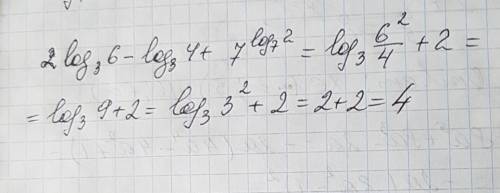 2 log₃ 6 − log₃ 4 + 7^(log₇ 2) = log₃ 6²/4 + 2 =
= log₃ 9 + 2 = log₃ 3² + 2 = 2 + 2 = 4